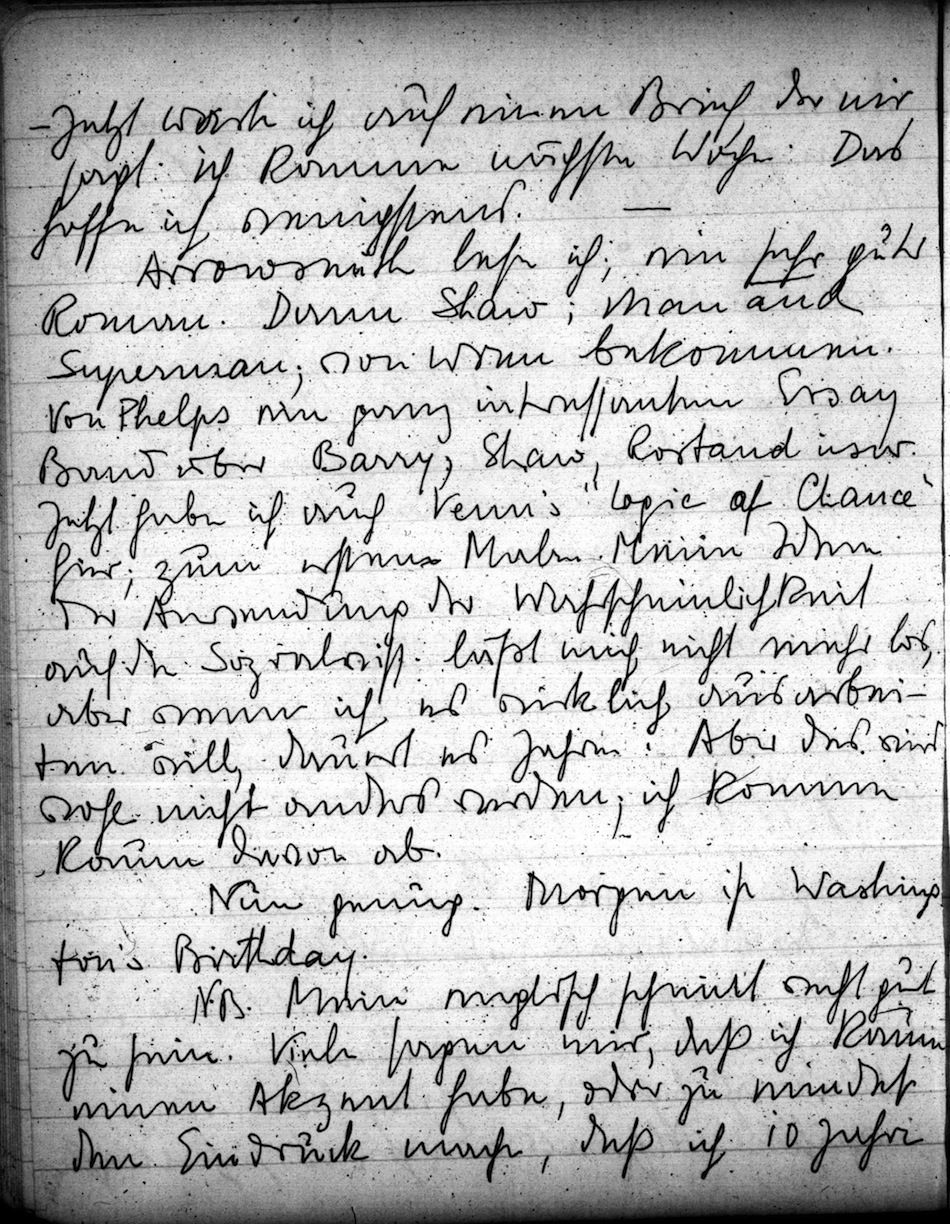 – Jetzt warte ich auf einen Brief, der mir
sagt: ich komme nächste Woche. Das
hoffe ich wenigstens. —
Arrowsmith lese ich; ein sehr guter
Roman. Dann Shaw; Man and
Superman; von Wien bekommen.
Von Phelps ein ganz interessanten Essay
Band über Barry, Shaw, Rostand usw.
Jetzt habe ich auch Venn's "Logic of Chance"
hier; zum ersten Male. Meine Idee
der Anwendung der Wahrscheinlichkeit
auf die Sozialwiss. läßt mich nicht mehr los,
aber wenn ich es wirklich ausarbei-
ten will, dauert es Jahre. Aber das wird
wohl nicht anders werden; ich komme
kaum davon ab.
Nun genug. Morgen ist Washing-
ton's Birthday.
N.B. Mein englisch scheint recht gut
zu sein. Viele sagen mir, daß ich kaum
einen Akzent habe, oder zu mindest
den Eindruck mache, daß ich 10 Jahre